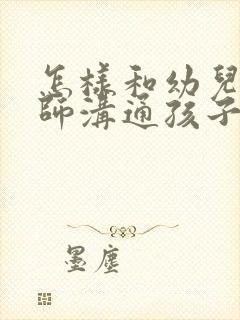 怎樣和幼兒
師溝通孩子
墨塵